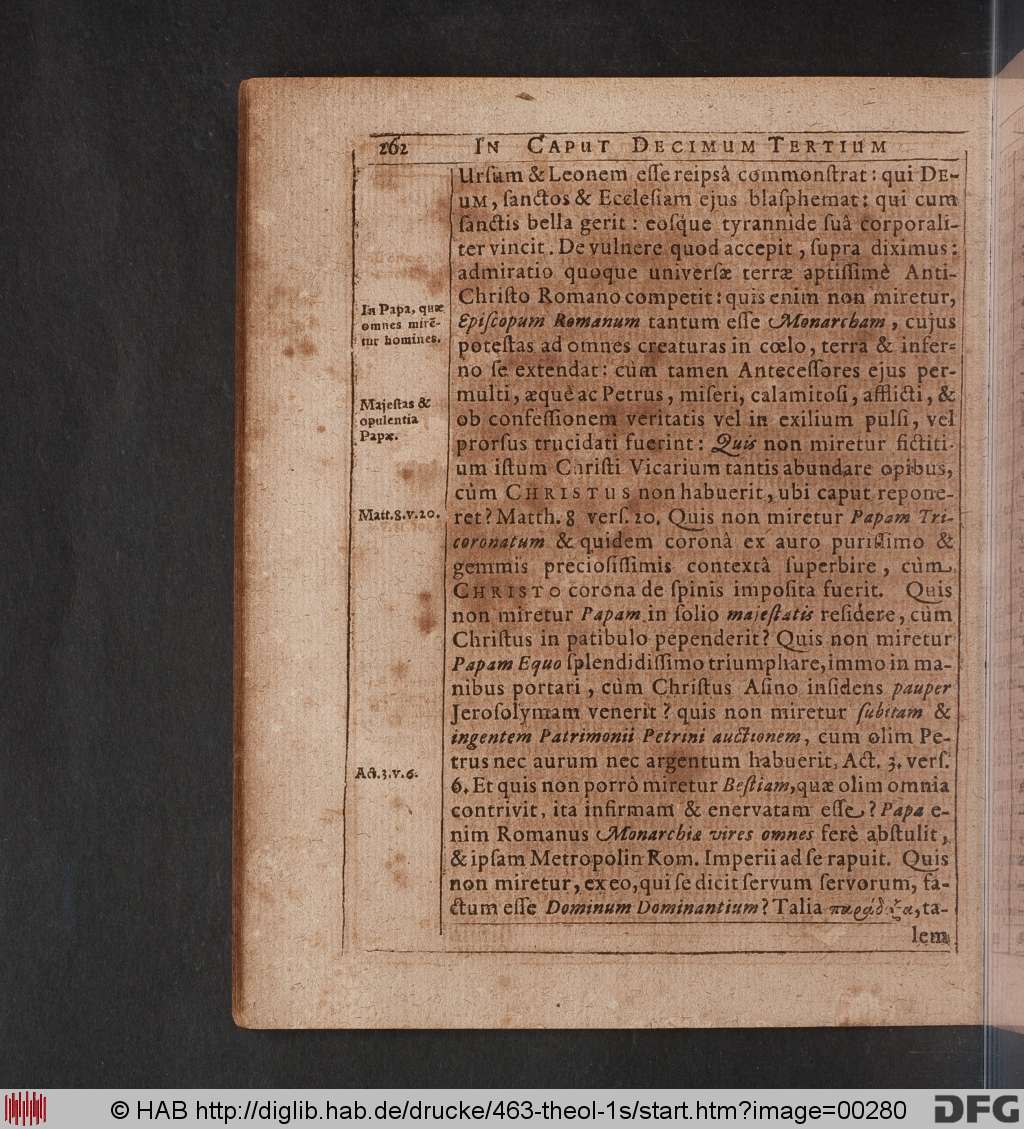 262 IN CAPUT DECIMUM TERTIUM
Urſum & Leonem eſſe reipsâ commonſtrat: qui DE-
UM, ſanctos & Eccleſiam ejus blaſphemat: qui cum
ſanctis bella gerit: eoſque tyrannide ſuâ corporali-
ter vincit. De vulnere quod accepit, ſupra diximus:
admiratio quoque univerſæ terræ aptiſſimè Anti-
Chriſto Romano competit: quis enim non miretur,
In Papa, quæ
omnes mirē-
tur homines.
Epiſcopum Romanum tantum eſſe Monarcham, cujus
poteſtas ad omnes creaturas in cœlo, terra & infer-
no ſe extendat: cùm tamen Anteceſſores ejus per-
multi, æquè ac Petrus, miſeri, calamitoſi, afflicti, &
Majeſtas &
opulentia
Papæ.
ob confeſſionem veritatis vel in exilium pulſi, vel
prorſus trucidati fuerint: Quis non miretur fictiti-
um iſtum Chriſti Vicarium tantis abundare opibus,
cùm CHRISTUS non habuerit, ubi caput repone-
Matt.8.v.20.
ret? Matth. 8 verſ. 20. Quis non miretur Papam Tri-
coronatum & quidem coronâ ex auro puriſſimo &
gemmis precioſiſſimis contextâ ſuperbire, cùm
CHRISTO corona de ſpinis impoſita fuerit. Quis
non miretur Papam in ſolio majeſtatis reſidere, cùm
Chriſtus in patibulo pependerit? Quis non miretur
Papam Equo ſplendidiſſimo triumphare, immo in ma-
nibus portari, cùm Chriſtus Aſino inſidens pauper
Jeroſolymam venerit? quis non miretur ſubitam &
ingentem Patrimonii Petrini auctionem, cum olim Pe-
trus nec aurum nec argentum habuerit, Act. 3. verſ.
Act.3.v.6.
6. Et quis non porrò miretur Beſtiam, quæ olim omnia
contrivit, ita infirmam & enervatam eſſe? Papa e-
nim Romanus Monarchiæ vires omnes ferè abſtulit,
& ipſam Metropolin Rom. Imperii ad ſe rapuit. Quis
non miretur, ex eo, qui ſe dicit ſervum ſervorum, fa-
ctum eſſe Dominum Dominantium? Talia παράδοξα, ta-
lem
© HAB http://diglib.hab.de/drucke/463-theol-1s/start.htm?image=00280
DFG